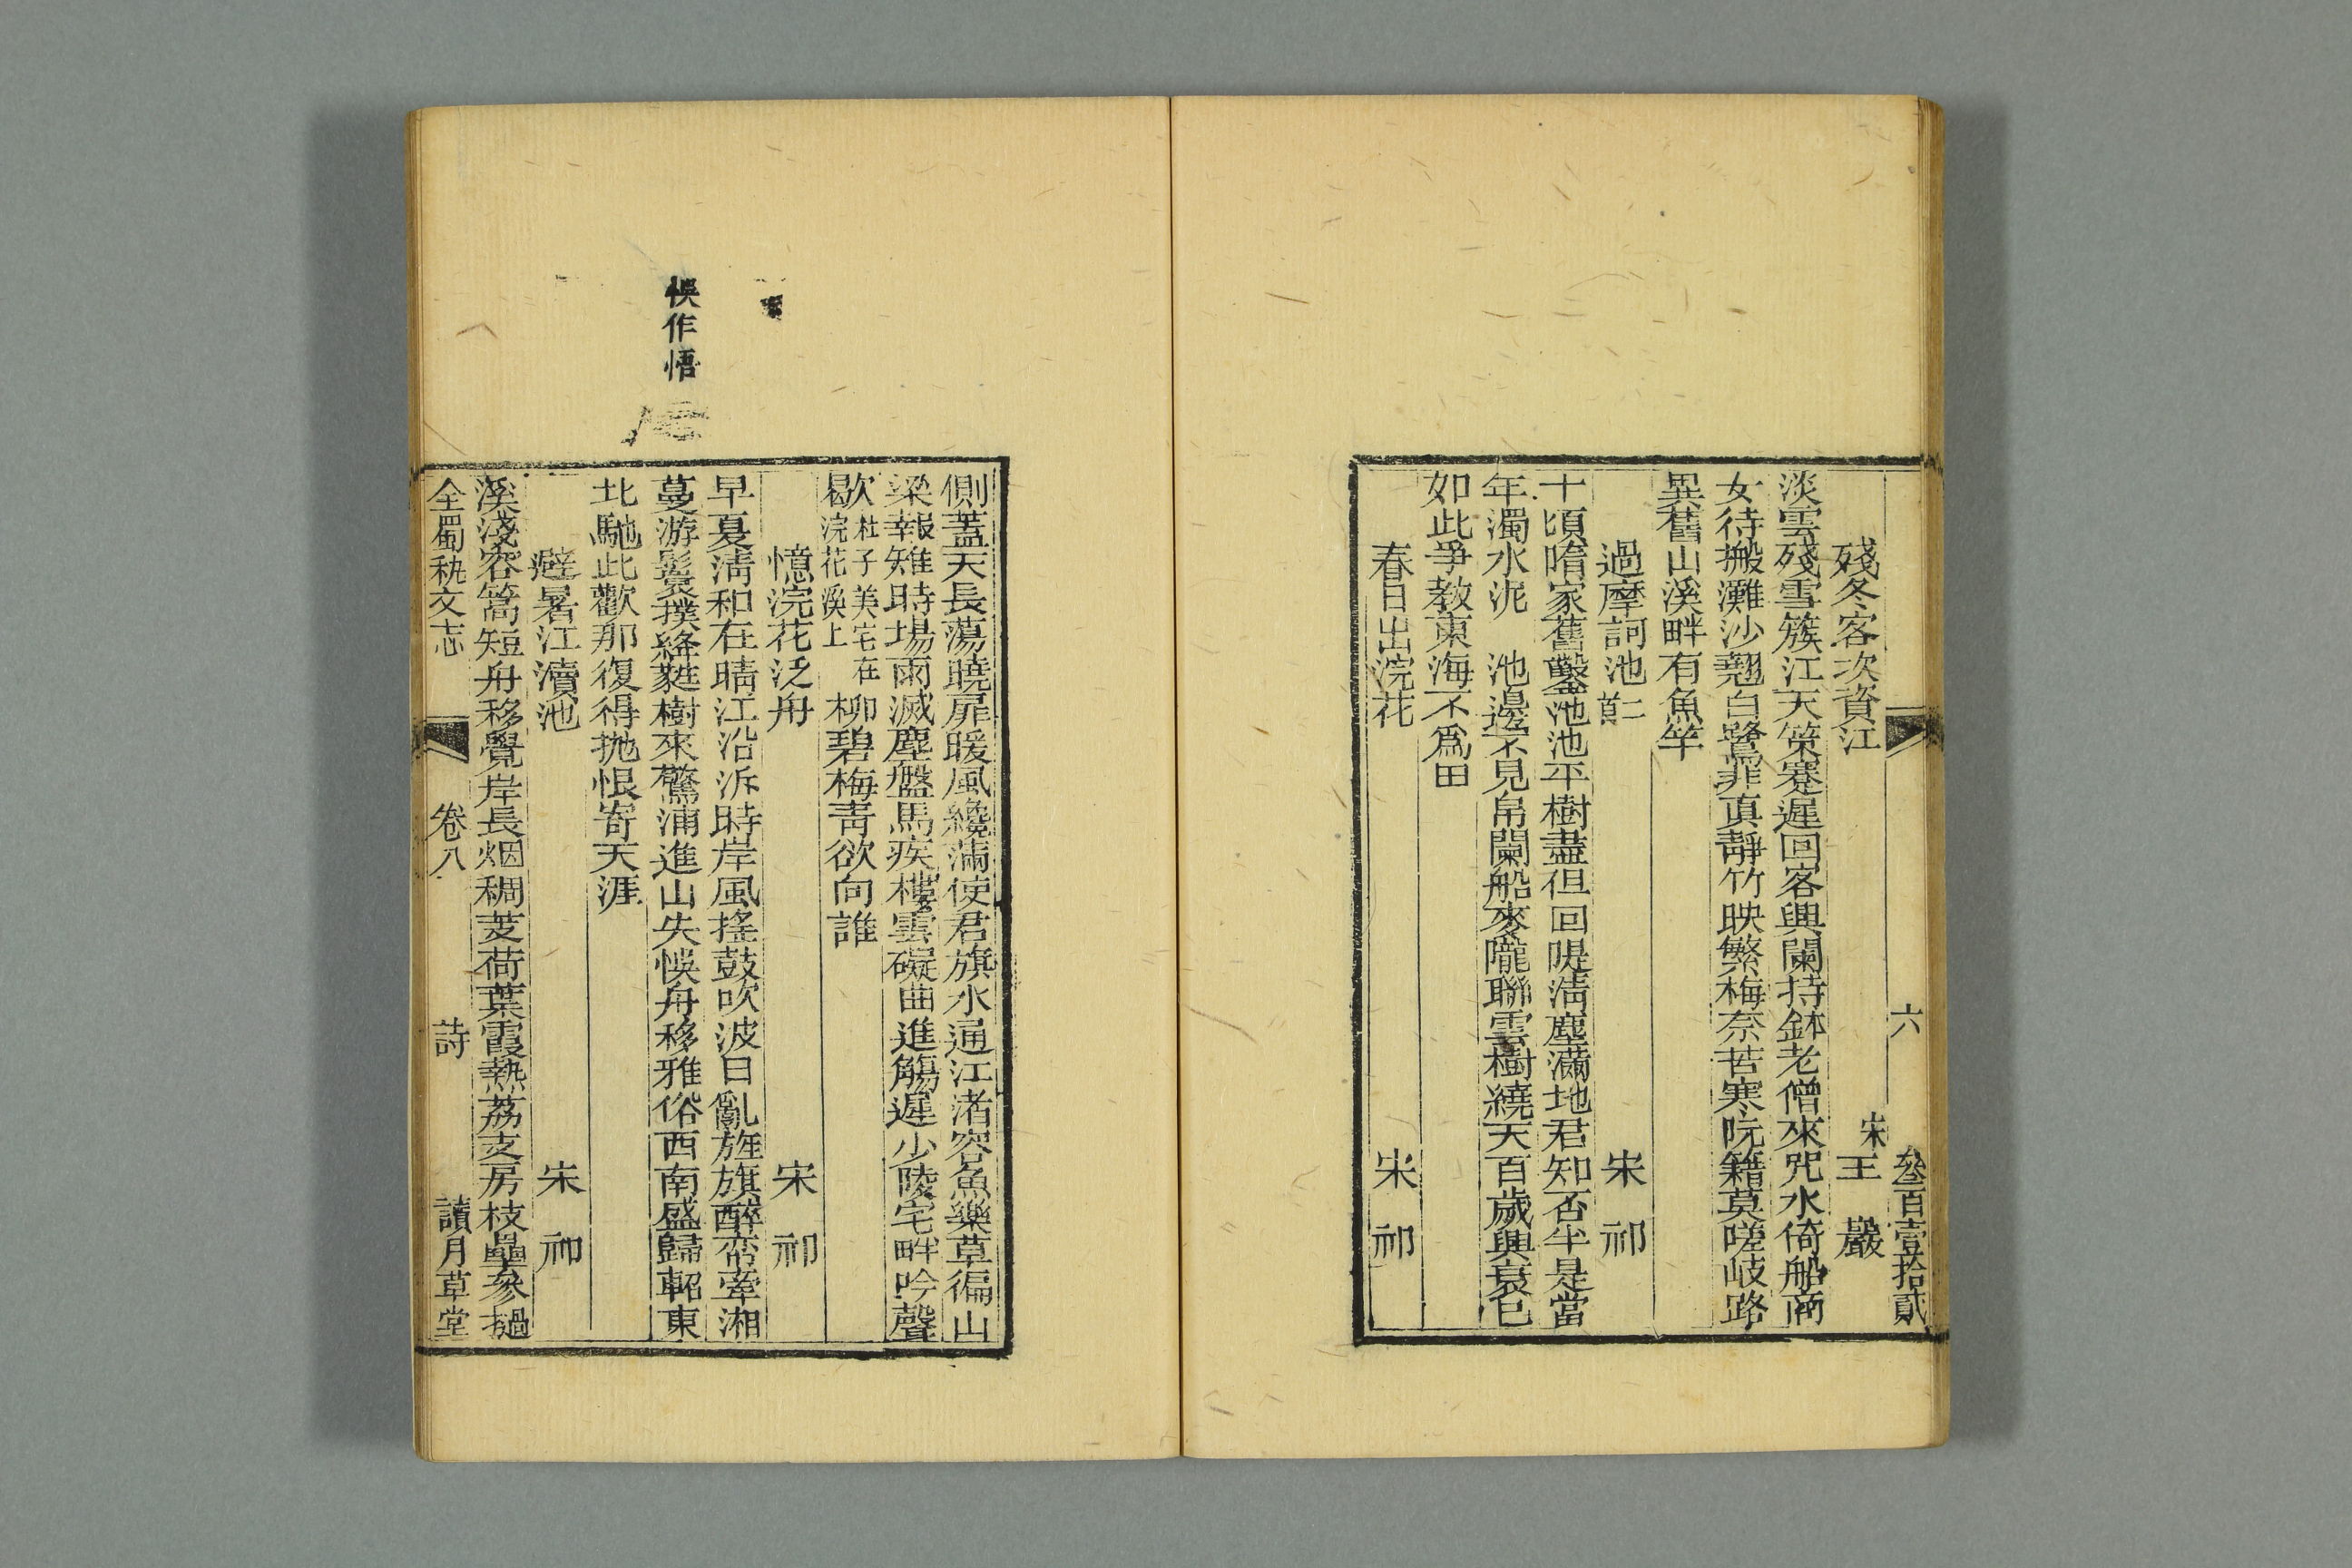 六　叁百壹拾貳
殘冬客次資江　宋王巖
淡雲殘雪簇江天策蹇遲回客興闌持鉢老僧來咒水倚船商
女待搬灘沙翹白鷺非眞靜竹映繁梅奈苦寒阮籍莫嗟岐路
異舊山溪畔有魚竿
過摩訶池二首　宋祁
十頃隋家舊鑿池池平樹盡但回隄淸塵滿地君知否半是當
年濁水泥　池邊不見帛闌船麥隴聯雲樹繞天百歲興衰已
如此爭教東海不爲田
春日出浣花　宋祁
側蓋天長蕩曉扉暖風纔滿使君旗水通江渚容魚樂草徧山
梁報雉時場雨滅塵盤馬疾樓雲礙曲進觴遲少陵宅畔吟聲
歇杜子美宅在浣花溪上柳碧梅靑欲向誰
憶浣花泛舟　宋祁
早夏淸和在晴江沿泝時岸風搖鼓吹波日亂旌旗醉帟牽湘
蔓游鬟撲絳蕤樹來驚浦進山失悞舟移雅俗西南盛歸軺東
北馳此歡那復得抛恨寄天涯
避暑江瀆池　宋祁
溪淺容篙短舟移覺岸長烟稠芰荷葉霞熱荔支房枝壘參撾
全蜀秇文志　卷八　詩　讀月草堂
悞作悟